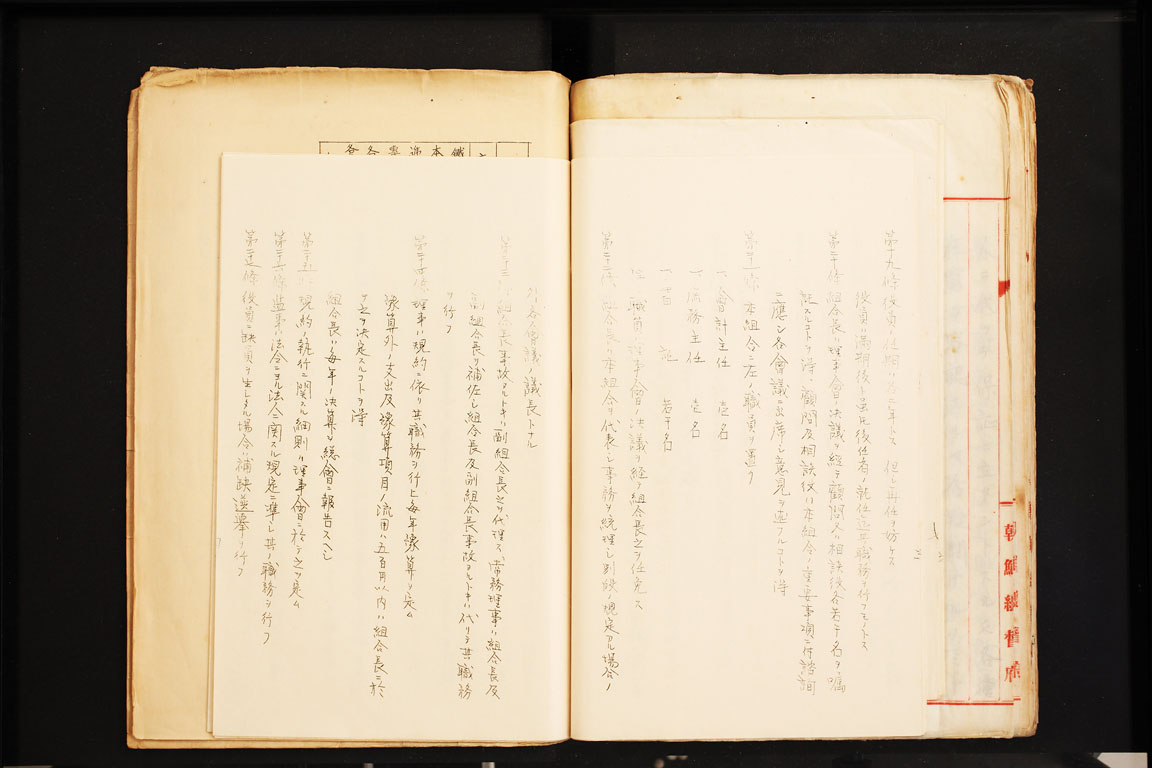 第十九條 役員ノ任期ハ ニヶ年トス 但シ再任ヲ妨ケス
役員ハ満期後ト雖氏後任者ノ就任迄其職務ヲ行フモノトス
第二十條 組合長ハ理事會ノ決議ヲ経テ顧問又ハ相談役各若干名ヲ嘱
託スルコトヲ得 顧問及相談役ハ本組合ノ重要事項ニ付諮詢
ニ應シ各會議ニ出席シ意見ヲ述フルコトヲ得
第二十一條 本組合ニ左ノ職員ヲ置ク
一 會計主任 壱名
一 庶務主任 壱名
一 書記 若干名
職員ハ理事會ノ決議ヲ経テ組合長之ヲ任免ス
第二十二條 組合長ハ本組合ヲ代表シ事務ヲ統理シ別段ノ規定アル場合ノ
外各會議ノ議長トナル
第二十三條 組合長事故アルトキハ副組合長之ヲ代理ス 常務理事ハ組合長及
副組合長ヲ補佐シ組合長及副組合長事故アルトキハ代リテ其職務
ヲ行フ
第二十四條 理事ハ規約ニ依リ其職務ヲ行ヒ毎年豫算ヲ定ム
豫算外ノ支出及豫算項目ノ流用ハ五百円以内ハ組合長ニ於
テ之ヲ決定スルコトヲ得
組合長ハ毎年ノ決算ヲ総會ニ報告スヘシ
第二十五條 規約ノ執行ニ関スル細則ハ理事會ニ於テ之ヲ定ム
第二十六條 監事ハ法令ニヨル法令ニ関スル規定ニ準シ其ノ職務ヲ行フ
第二十七條 役員ニ缺員ヲ生シタル場合ハ補缺選擧ヲ行フ
朝鮮總督府